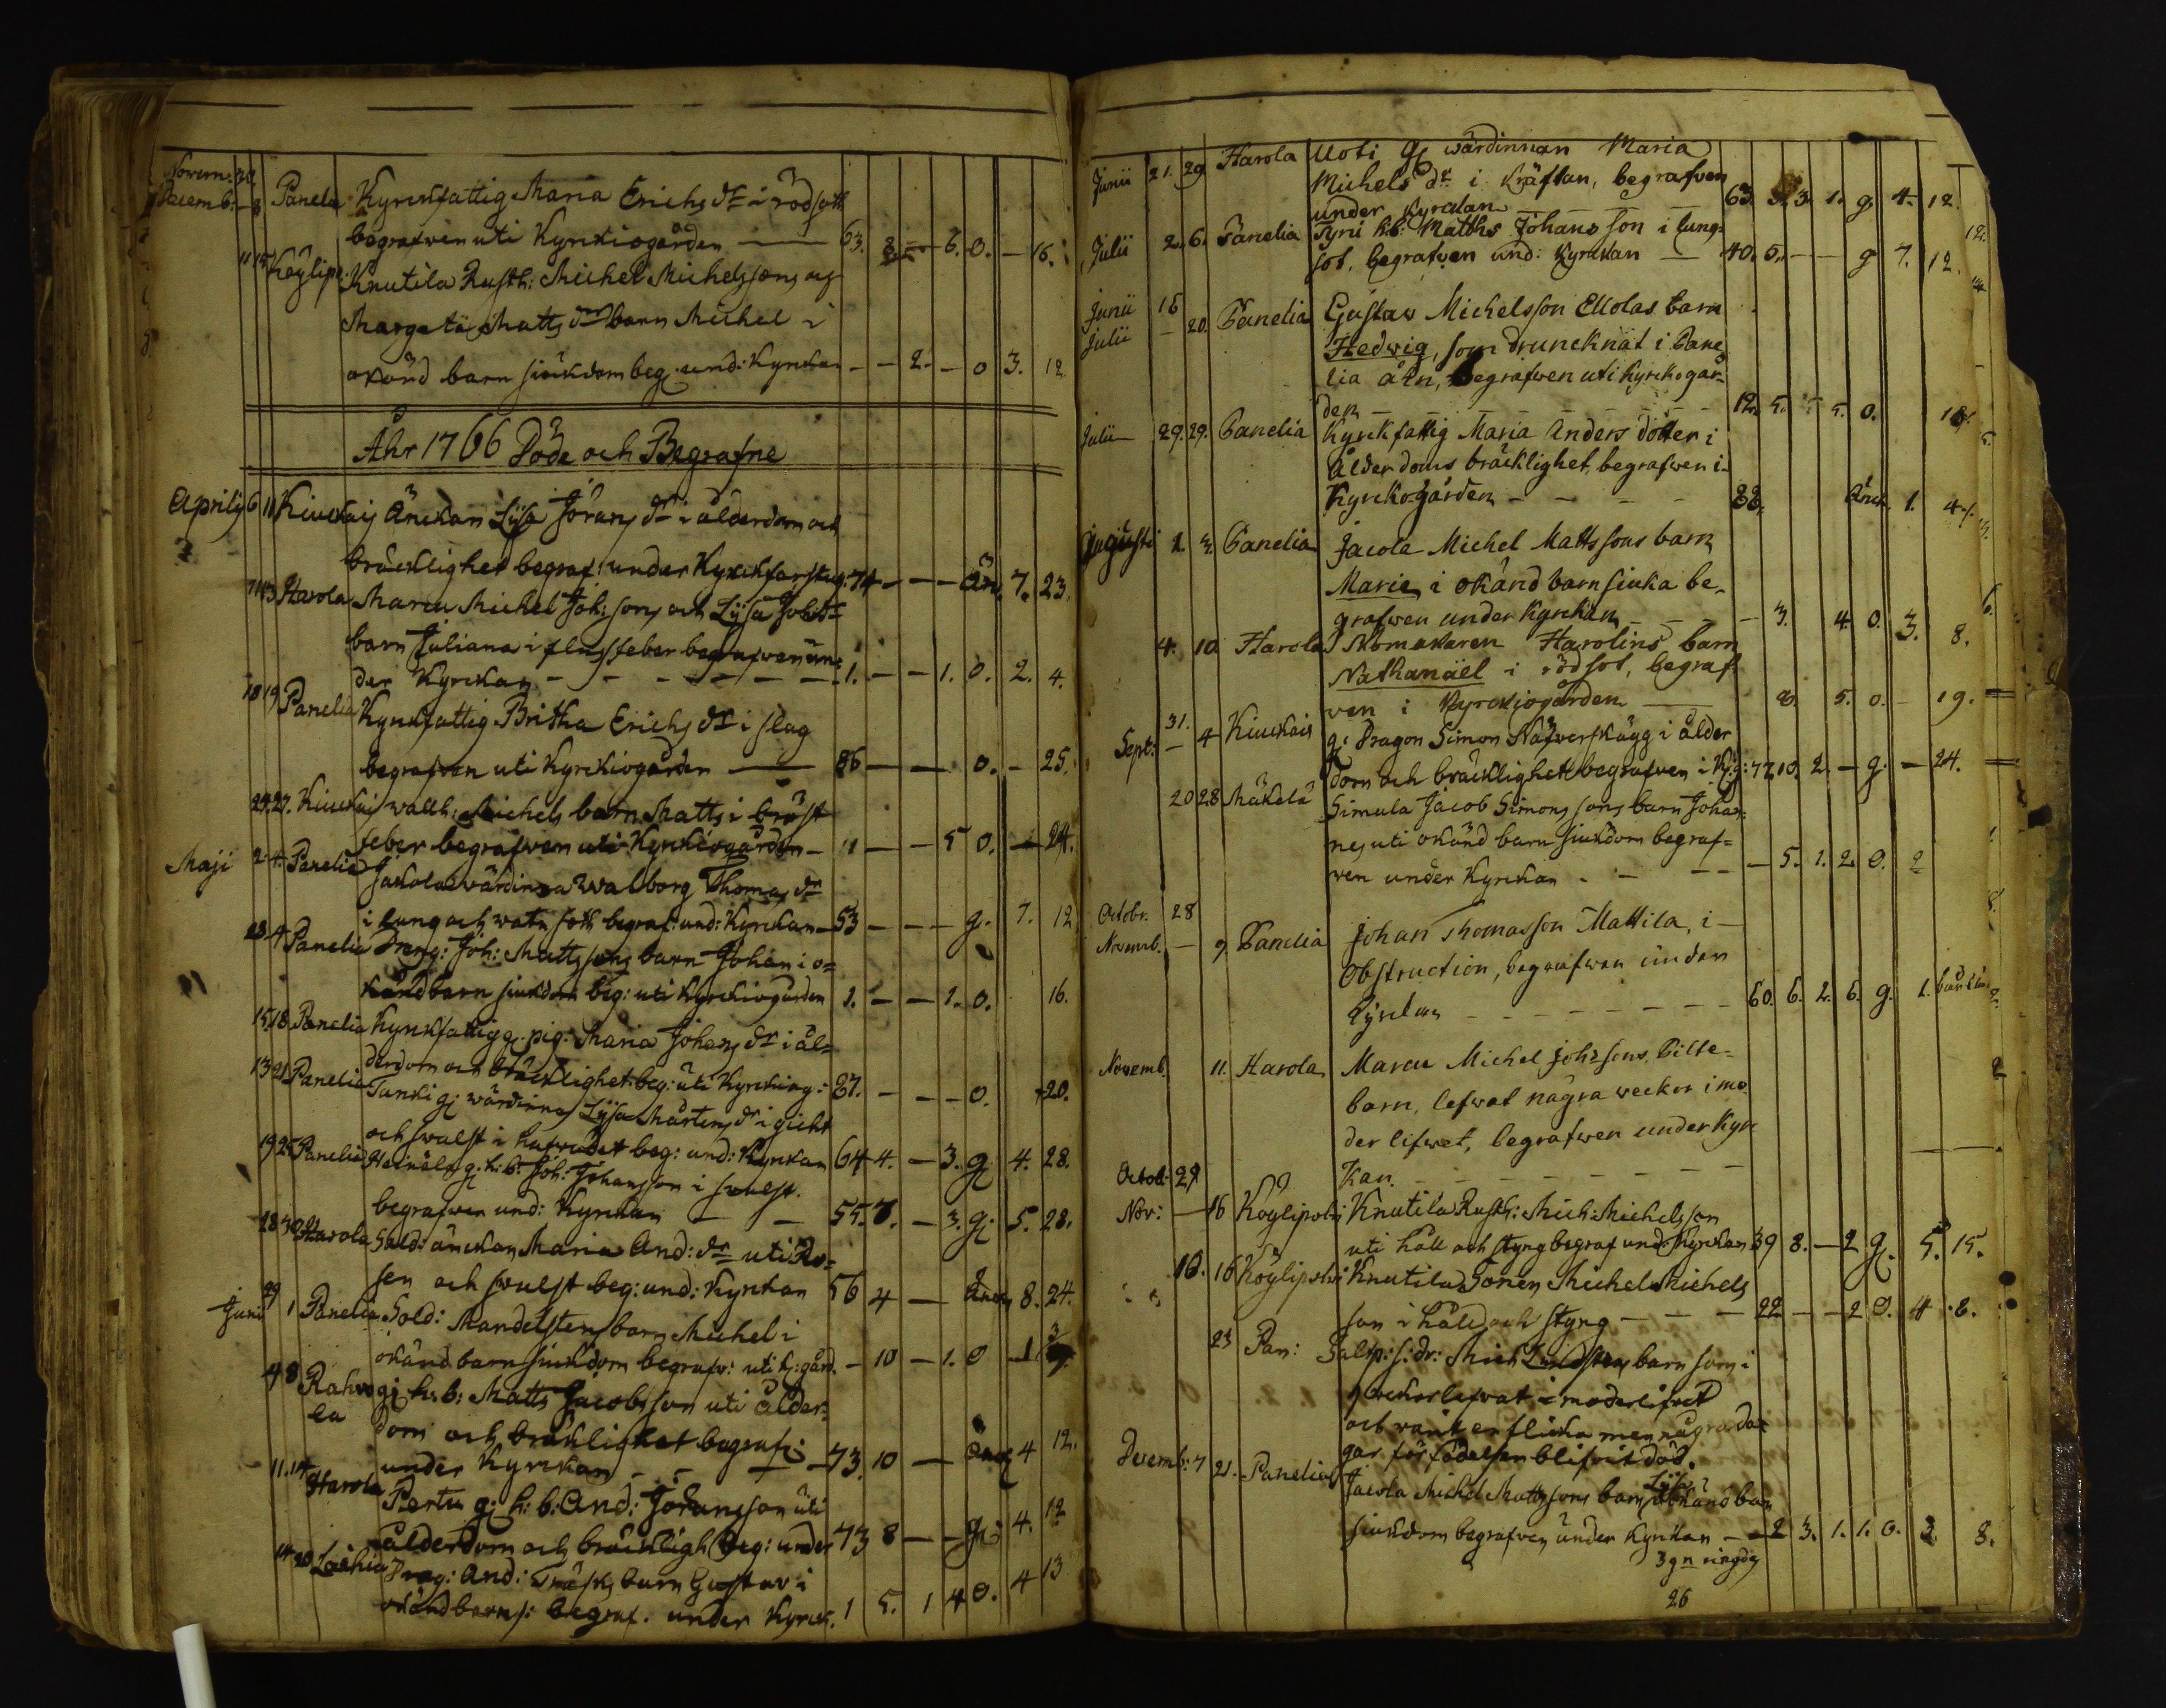 Novem: 30.
Decemb: – 8 Panelia Kyrckfattig Maria Erichs dr i rödsott
begrafwen uti Kyrckiogården — 63. 8. – 6. 0. – 16.
11 15 Köylipo: Knutila Rusth: Michel Michelssons och
Margeta Matts drs barn Michel i
okänd barn siuckdom beg: und: Kyrckan – – 2. – 0 3. 12
Åhr 1766 Döde och Begrafne
Aprilis 6 11 Kiuckais Änckan Lisa Jörans dr i ålderdom och
bräcklighet begraf: under Kyrckfarstug: 74 – – – Än. 7. 23.
7 13 Harola Marcu Michel Joh: sons och Lisa Johs dr
barn Juliana i flussfeber begrafwen un-
der Kyrckan – – – – – 1. – – 1. 0. 2. 4.
18 19 Panelia Kyrckfattig Britha Erichs dr i slag
begrafwen uti Kyrckiogården — 86 – – 0. – 25.
24. 27. Kiuckais wallh: Michels barn Matts i bröst
feber begrafwen uti Kyrckiogården – 11 – – 5 0. – 24.
Maji 2 4 Panelia Jakola wärdinna Walborg Thomas dr
i lung och watn sott begraf: und: Kyrckan – 53 – – – g. 7. 12
23 4 Panelia Dreng: Joh: Mattssons barn Johan i o=
känd barn siuckdom beg: uti Kyrckiogården 1. – – 1. 0. 16.
15. 18 Panelia Kyrckfattig g. pig: Maria Johans dr i ål=
derdom och bräcklighet beg: uti Kyrckiog: 87. – – – 0. 20.
13 21 Panelia Tanki gj wärdinna Lisa Mårtens dr i gickt
och swulst i hufwudet beg: und: Kyrckan 64 4. – 3. g. 4. 28.
19 25 Panelia Heinälä g. h: b: Joh: Johansson i swulst.
begrafwen und: Kyrckan – – 55. 7. – 3. g. 5. 28.
28 30 Harola Sold: änckan Maria And: dr uti Ro=
sen och swulst beg: und: Kyrckan 56 4 – Änck. 8. 24.
Junii 29 1 Panelia Sold: Mandelstens barn Michel i
okänd barn siuckdom begrafw: uti k: gård. – 10 – 1. 0 1
4 8 Rahvo gj h: b: Matts Jacobsson uti ålder=
la dom och bräcklighet begrafv:
under Kyrckan – – – 73. 10 – Änck 4 12.
11. 14 Harola Pertu g: h: b: And: Johansson uti
ålderdom och bräckligh beg: under 73 8 – – g: 4. 12
14 20 Laihia Drag: And: Träsks barn Gustav i
okänd barns: begraf. under Kyrck. 1 5. 1 4 0. 4 13
Junii 21. 29. Harola Uoti gj wärdinnan Maria
Michels dr i kräftan, begrafven
under Kyrckan 63. 3. 3. 1. g. 4. 12.
Julii 2. 6. Panelia Tyni h.b: Matths Johans son i lung-
sot, begrafven und: Kyrckan — 40. 5. – – g 7. 12.
Junii 15
Julii – 20. Panelia Gustav Michelsson Ellolas barn
Hedwig, som druncknat i Pane
lia åen, begrafwen uti kyrckogår-
den – – – – – – – 12. 5. – 5. 0. 16.
Julii 29. 29. Panelia Kyrckfattig Maria Anders dotter i
Ålderdoms bräcklighet, begrafwen i
Kyrckogården – – – – 88. Änck. 1. 4.
Augusti 1. 3. Panelia Jacola Michel Mattssons barn
Maria i okänd barnsiuka be-
grafwen under Kyrckan – – – 3. 4. 0. 3. 8.
4. 10 Harola Skomakaren Harolins barn
Nathanaël i rödsot, begraf-
ven i Kyrckiogården — 8. 5. 0. – 19.
31.
Sept: – 4 Kiuckais g: Dragon Simon Näfverskägg i ålder
dom och bräcklighet begrafven i K: g: 77. 10. 2. – g. – 24.
20 28 Mäkelä Simula Jacob Simons sons barn Johan-
nes uti okänd barn siuckdom begraf=
ven under Kyrckan . – – – – 5. 1. 2. 0. 2
Octobr. 28
Novemb. – 9. Panelia Johan Thomasson Mattila, i
Obstruction, begrafwen under
kyrckan – – – – – – – 60. 6. 2. 6. g. 1.
Novemb. 11. Harola Marcu Michel Johssons Pilte-
barn, lefwat några weckor i mo-
der lifwet, begrafwen under Kyrc
kan. – – – – – – –
Octob: 29
Nov: – 16 Köylipolvi Knutila Rusth: Mich: Michelsson
uti håll och styng begraf und: Kyrckan 39 8. – 2 g. 5. 15.
10. 16 Köylipolvi Knutila Sonen Michel Michels
son i håll och styng – – – 22 – – 2 0. 4 8.
23 Pan: Saltp: s: dr: Mich Lindstens barn som i
weckor lefwat i moderlifvet
och varit en flicka men några da-
gar för födelsen blifvit död.
Decemb: 7 21. Panelia Jacola Michel Mattssons barn Lisa okänd barn
siuckdom begrafven under Kyrckan – 2 3. 1. 1. 0. 3. 8.
3 gn ringdg
26